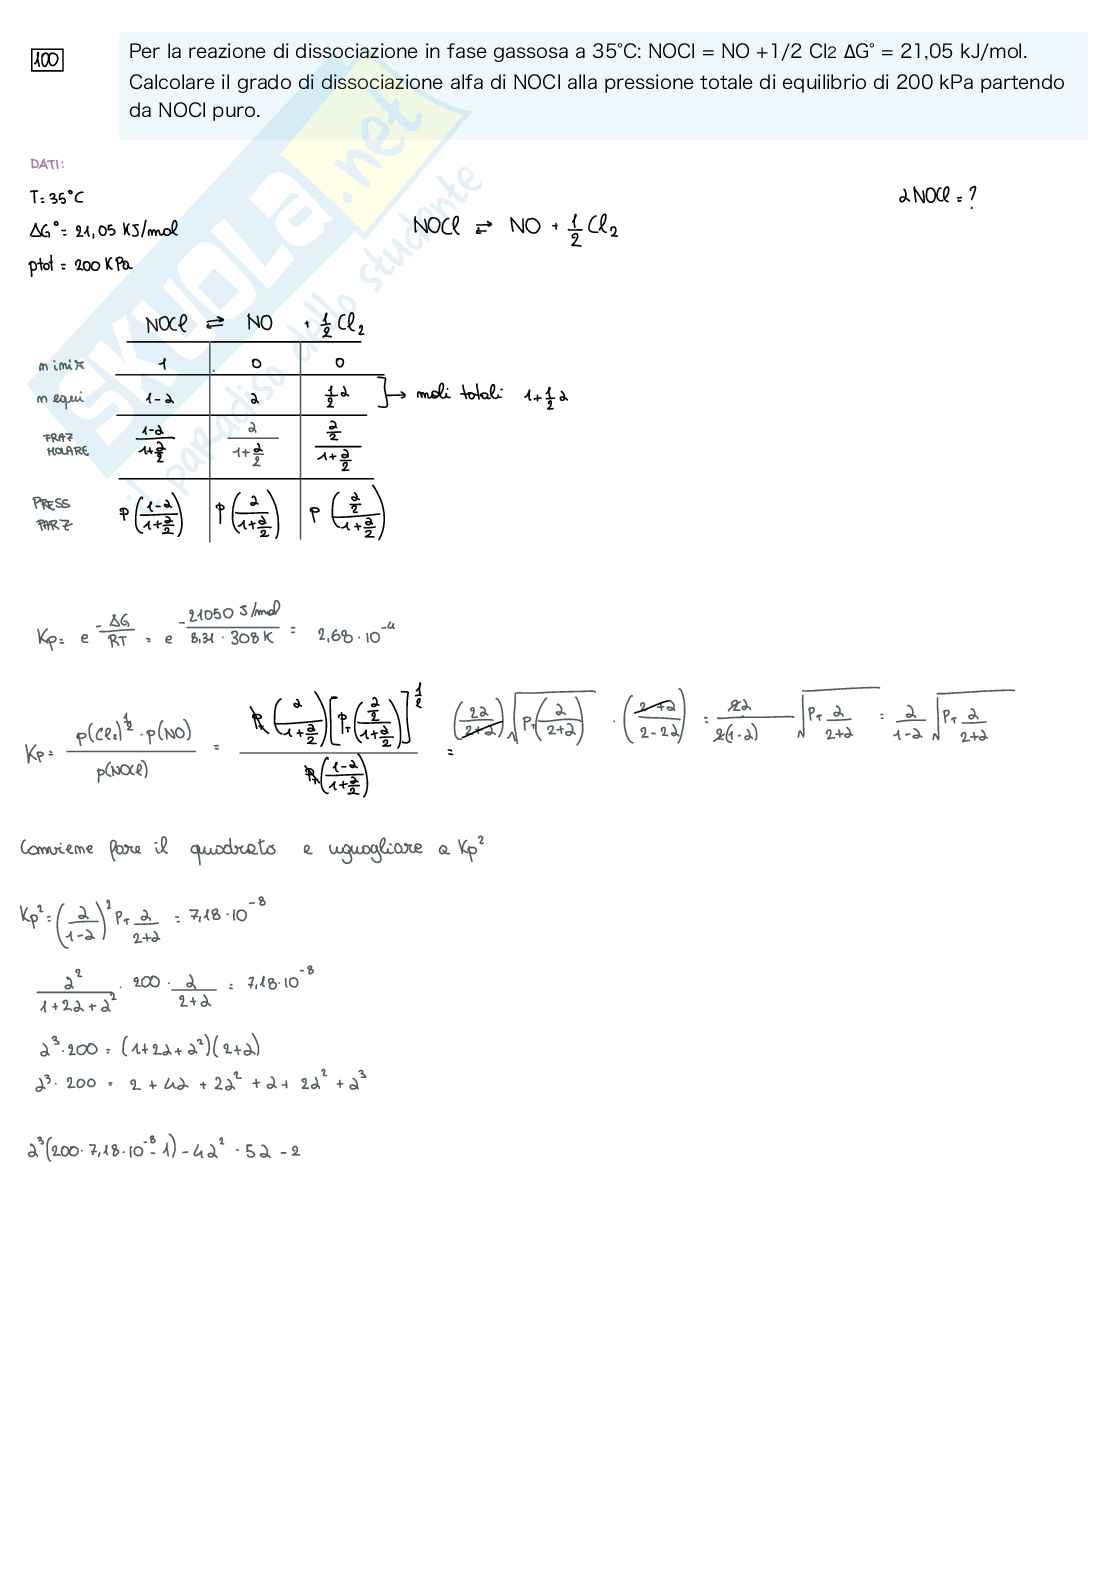 100
Per la reazione di dissociazione in fase gassosa a 35°C: NOCl = NO +1/2 Cl2 ΔG° = 21,05 kJ/mol.
Calcolare il grado di dissociazione alfa di NOCl alla pressione totale di equilibrio di 200 kPa partendo
da NOCl puro.
DATI:
T: 35°C
ΔG° = 21,05 KJ/mol
ptot = 200 KPa
NOCl ⇌ NO + 1/2 Cl₂
α NOCl = ?
NOCl ⇌ NO + 1/2 Cl₂
n iniz 1 0 0
n equi 1-α α 1/2 α → moli totali 1+1/2 α
FRAZ MOLARE (1-α)/(1+α/2) α/(1+α/2) (α/2)/(1+α/2)
PRESS PARZ P((1-α)/(1+α/2)) P(α/(1+α/2)) P((α/2)/(1+α/2))
Kp= e^(-ΔG/RT) = e^(-21050 J/mol / 8,31 · 308 K) = 2,68 · 10⁻⁴
Kp= p(Cl₂)^(1/2) · p(NO) / p(NOCl) = Pₜ(α/(1+α/2)) [Pₜ((α/2)/(1+α/2))]^(1/2) / Pₜ((1-α)/(1+α/2)) = (2α/(2+α)) √(Pₜ(α/(2+α))) · ((2+α)/(2-2α)) = 2α/(2(1-α)) √(Pₜ α/(2+α)) = α/(1-α) √(Pₜ α/(2+α))
Conviene fare il quadrato e uguagliare a Kp²
Kp² = (α/(1-α))² Pₜ α/(2+α) = 7,18 · 10⁻⁸
α²/(1+2α+α²) · 200 · α/(2+α) = 7,18 · 10⁻⁸
α³ · 200 = (1+2α+α²)(2+α)
α³ · 200 = 2 + 4α + 2α² + α + 2α² + α³
α³(200 · 7,18 · 10⁻⁸ - 1) - 4α² - 5α - 2
SKUOLA.net
il paradiso dello studente